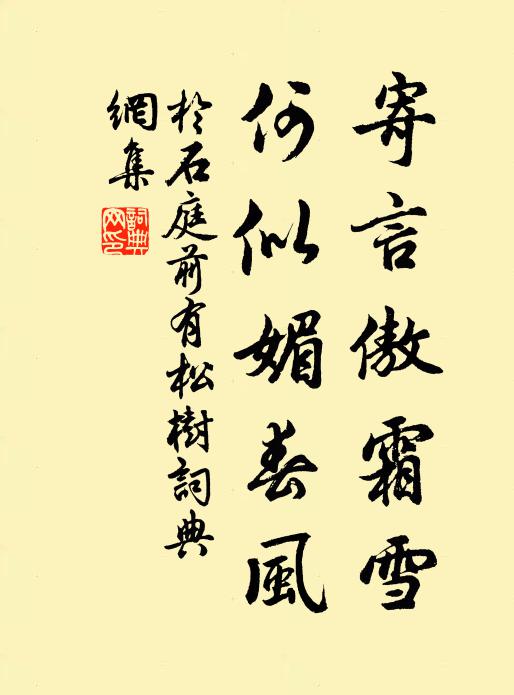 寄言傲霜雪
何似媚春風
於石庭前有松樹詞典
網集
詞典網印